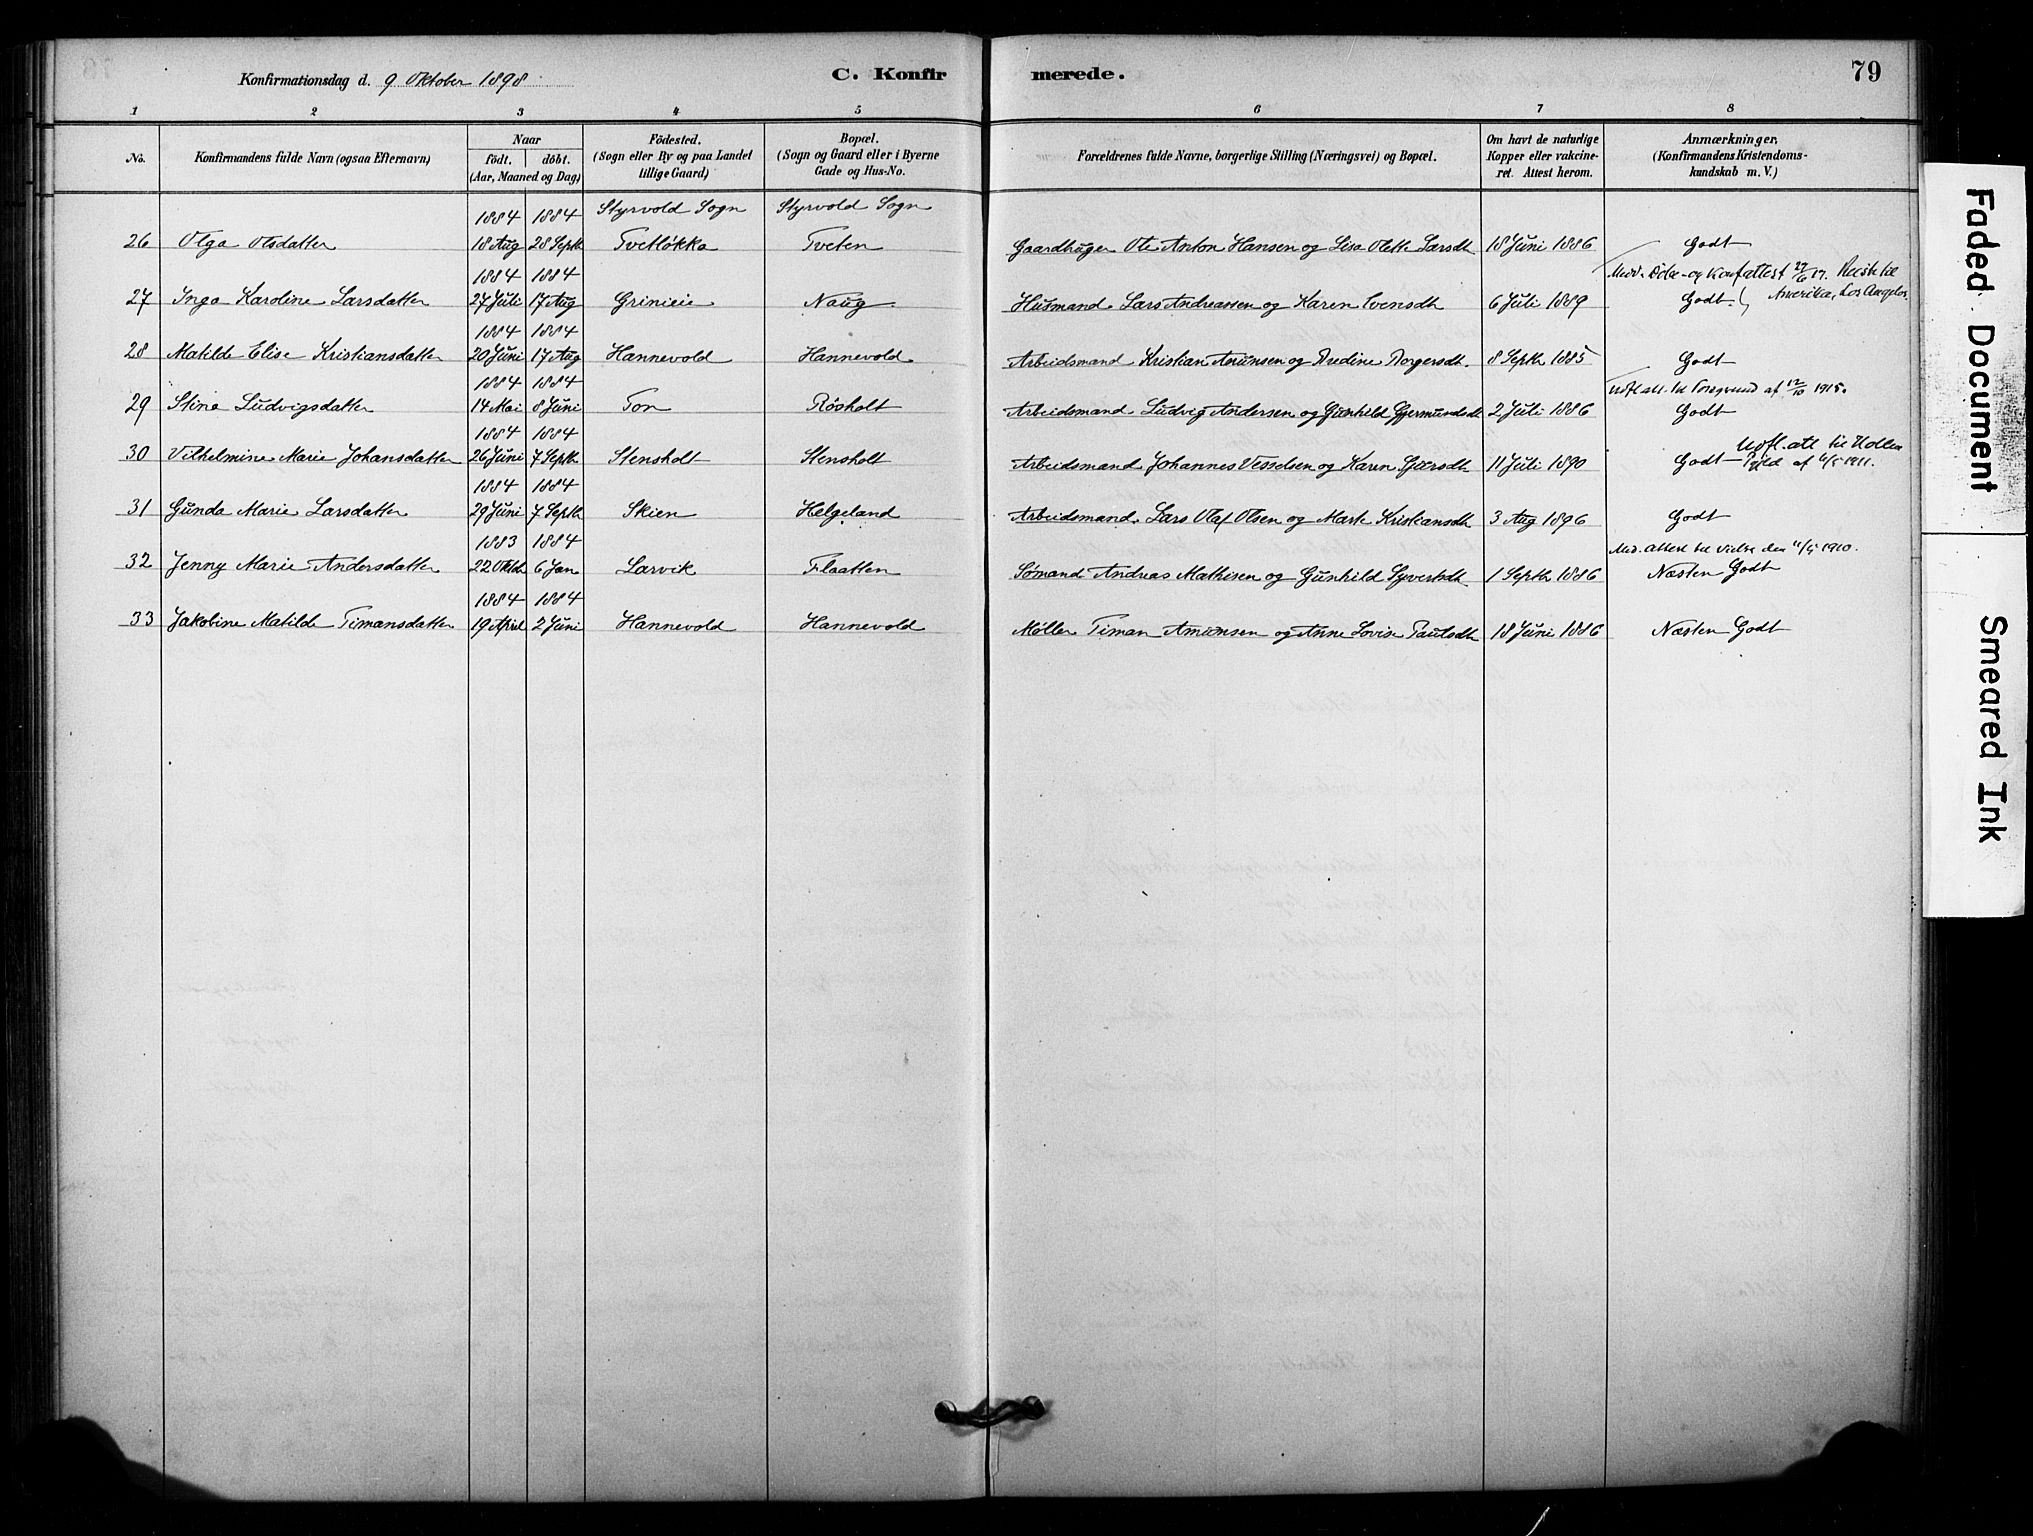 Konfirmationsdag d. 9 Oktober 1898. C. Konfirmerede. 79
1 2 3 4 5 6 7 8
No. Konfirmandens fulde Navn (ogsaa Efternavn) Naar födt. döbt. (Aar, Maaned og Dag) Födested. (Sogn eller By og paa Landet tillige Gaard) Bopæl. (Sogn og Gaard eller i Byerne Gade og Hus-No. Forældrenes fulde Navne, borgerlige Stilling (Næringsvei) og Bopæl. Om havt de naturlige Kopper eller vakcineret. Attest herom. Anmærkninger, (Konfirmandens Kristendomskundskab m. V.)
1884 1884 Styrvold Sogn Styrvold Sogn
26 Olga Olsdatter 18 Aug 28 Septb Tvetløkka Tveten Gaardbruger Ole Anton Hansen og Lisa Olette Larsdt 18 Juni 1886 Godt
1884 1884 Medd. Døbe- og konfattest 27/6 17. Reise til
27 Inga Karoline Larsdatter 27 Juli 17 Aug Grinieie Naug Husmand Lars Andreassen og Karen Svensdt 6 Juli 1889 Godt. Amerika, Los Angelos.
1884 1884
28 Matilde Elise Kristiansdatter 20 Juni 17 Aug Hannevold Hannevold Arbeidsmand Kristian Amunsen og Andine Borgersdt. 8 Septb 1885 Godt
1884 1884 Udfl. att. til Porsgrund af 12/10 1915.
29 Stina Ludvigsdatter 14 Mai 8 Juni Ton Rösholt Arbeidsmand Ludvig Andersen og Gunhild Gjermundsdt 2 Juli 1886 Godt
1884 1884 Udfl. att til
30 Vilhelmine Marie Johansdatter 26 Juni 7 Septb Stensholt Stensholt Arbeidsmand Johannes Vesselsen og Karen 11 Juli 1890 Godt af 6/5 1911.
1884 1884
31 Gunda Marie Larsdatter 29 Juni 7 Septb Skien Helgeland Arbeidsmand Lars Olaf Olsen og Marte Kristiansdt 3 Aug 1896 Godt
1883 1884 Med. attest til vielse den 11/5 1910.
32 Jenny Marie Andersdatter 22 Oktbr 6 Jan Larvik Flaatten Sømand Andreas Mathisen og Gunhild Syvertsdt 1 Septb 1886 Næsten Godt
1884 1884
33 Jakobine Matilde Timansdatter 19 April 2 Juni Hannevold Hannevold Møller Timan Amunsen og Anne Lovise Paulsdt 18 Juni 1886 Næsten Godt
Faded Document
Smeared Ink